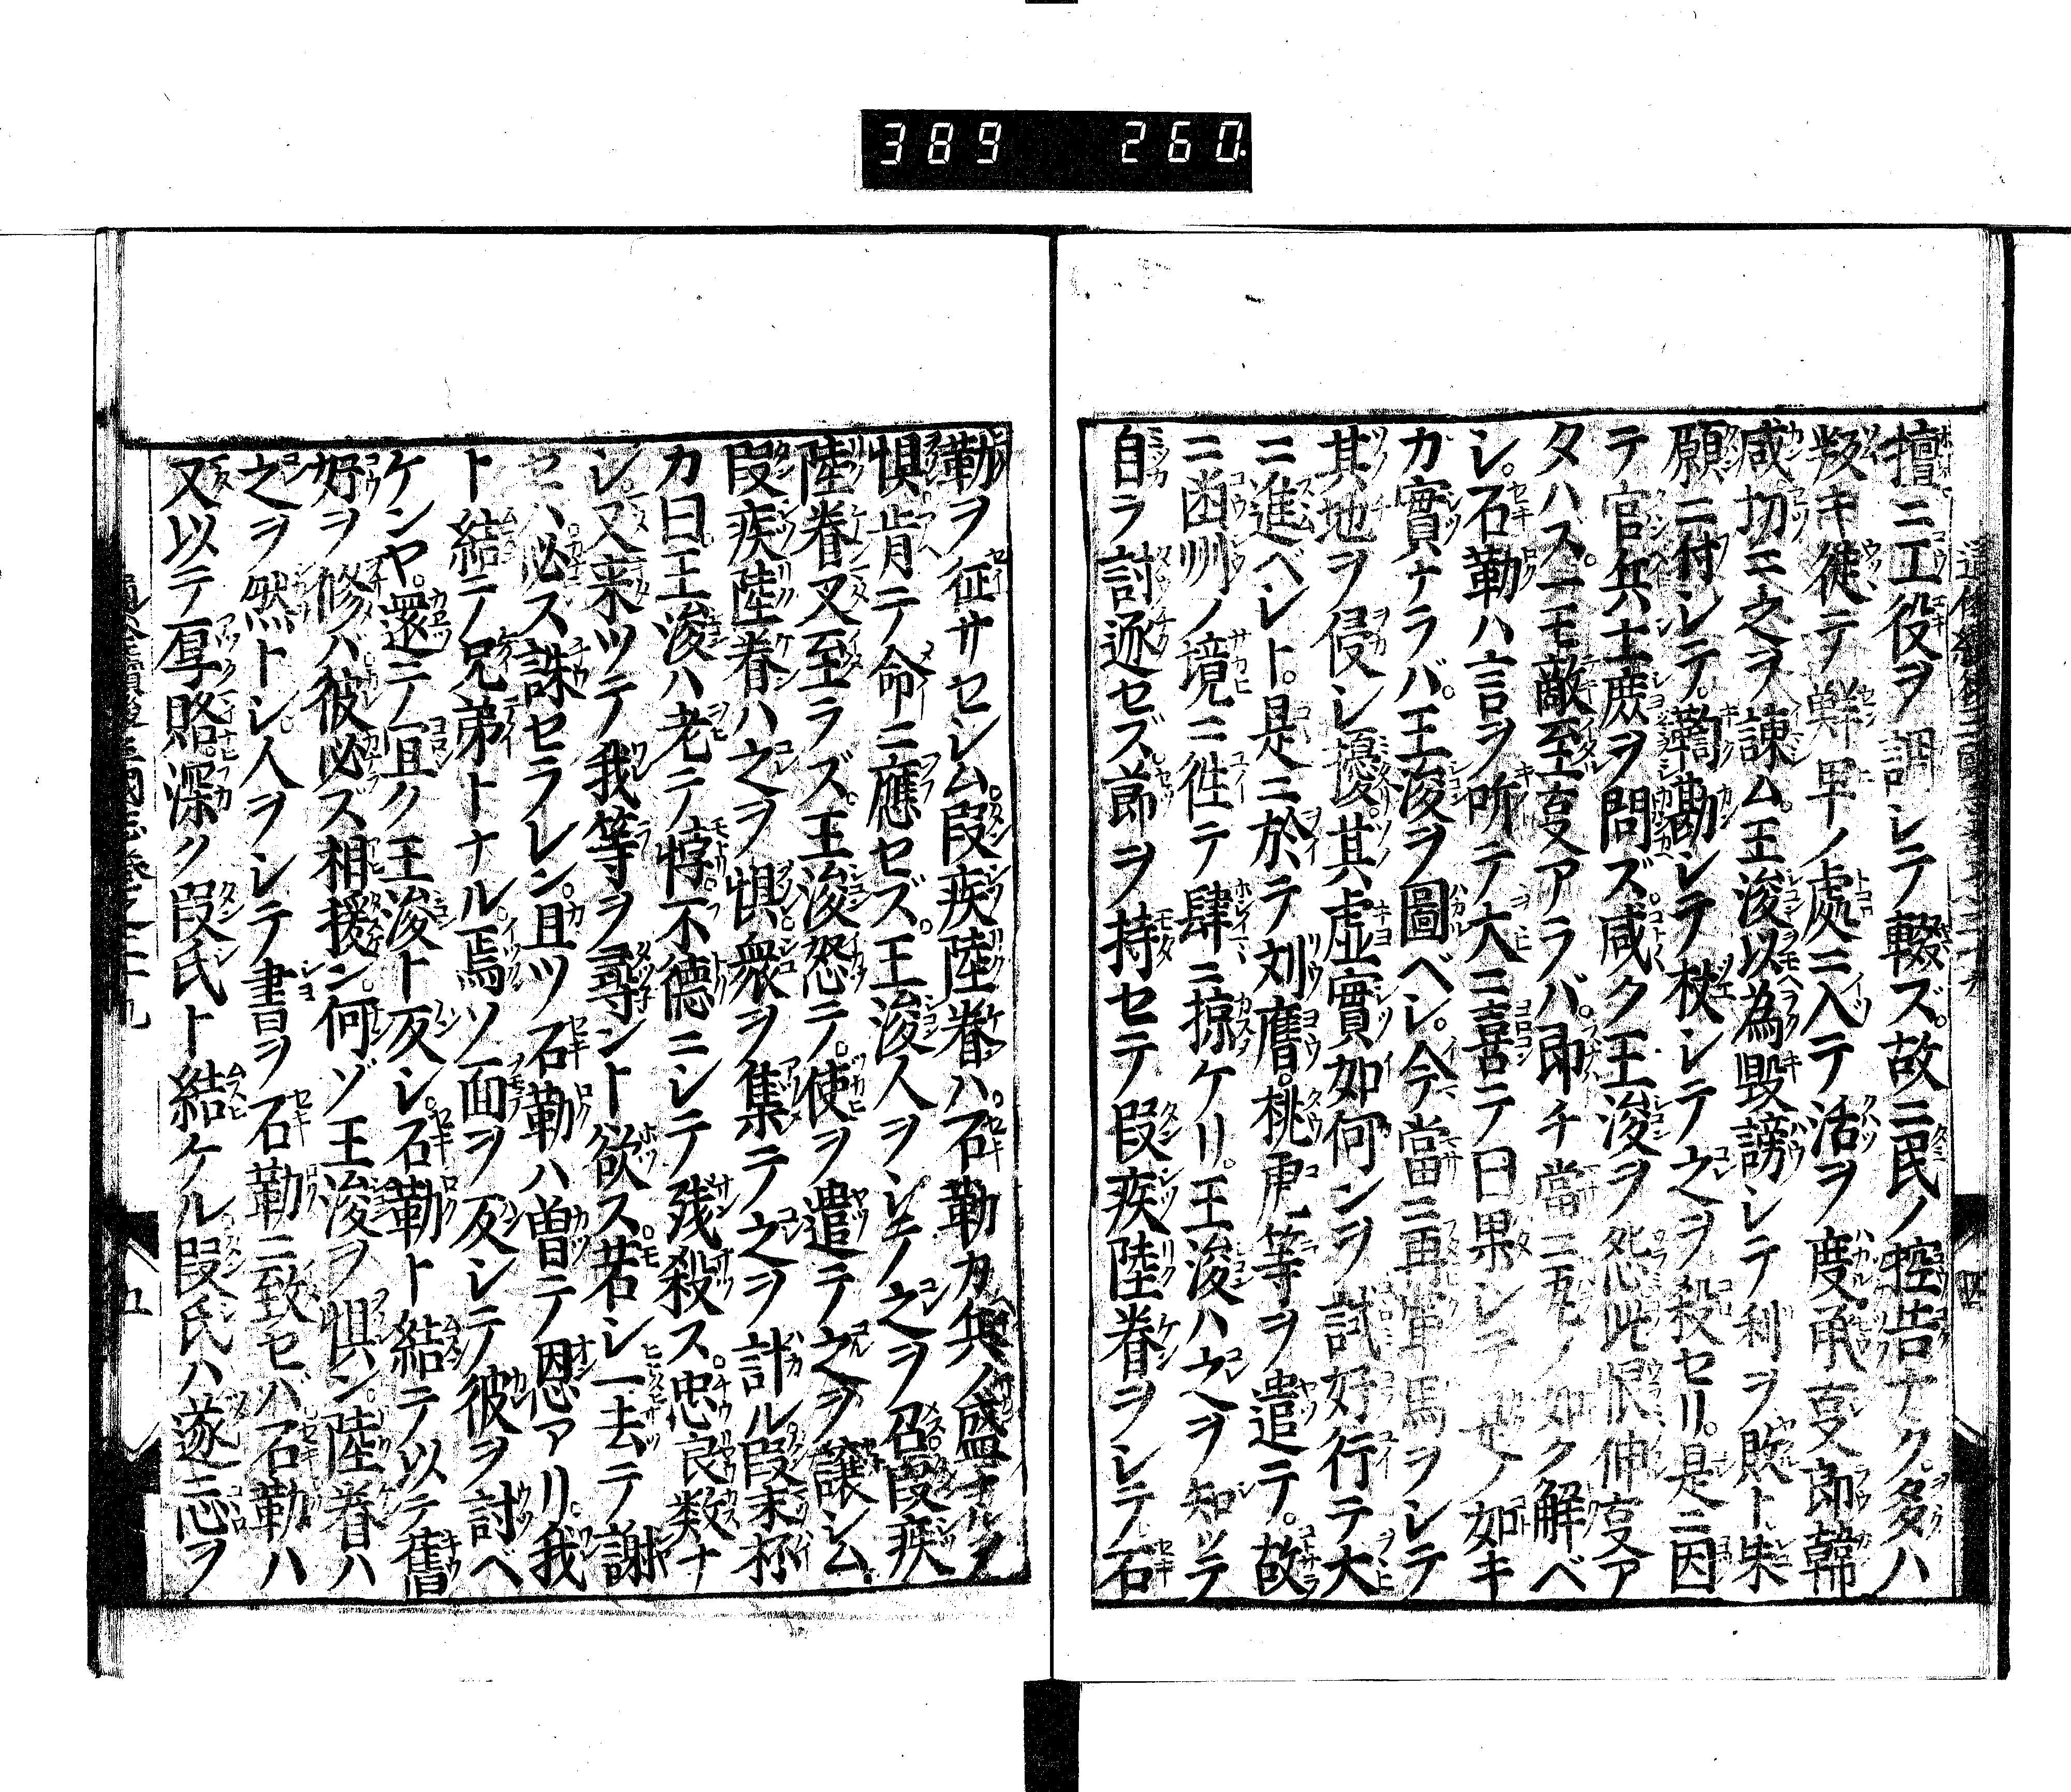 389 260
擅ニ工役ヲ調シテ輟ズ。故ニ民ノ控告ナク。多ハ
叛キ徙テ鮮卑ノ處ニ入テ活ヲ度。甬㕝郎韓
咸切ニ之ヲ諫ム。王浚以為毀謗シテ利ヲ敗ト。朱
願ニ付シテ。鞫勘シテ杖シテ之ヲ殺セリ。是ニ因
テ官兵士蔗ヲ問ズ。咸ク王浚ヲ怨此恨伸㕝ア
タハス。一モ敵至㕝アラバ。即チ當ニ瓦ノ如ク解ベ
シ。石勒ハ言ヲ听テ大ニ喜テ曰果シテ是ノ如キ
カ實ナラバ。王浚ヲ圖ベシ。今當ニ再軍馬ヲシテ
其地ヲ侵シ擾。其虚實如何ンヲ試好行テ大
ニ進ベシト。是ニ於テ刘膺。桃庚等ヲ遣テ。故
ニ凾州ノ境ニ徃テ肆ニ掠ケリ。王浚ハ之ヲ知ッテ
自ラ討逐セズ。節ヲ持セテ叚疾陸眷ヲシテ石
勒ヲ征サセシム。叚疾陸眷ハ石勒カ兵ノ盛ナルヲ
惧。肯テ命ニ應セズ。王浚人ヲシテ之ヲ召。叚疾
陸眷又至ラズ。王浚恐テ。使ヲ遣テ之ヲ譲シム。
叚疾陸眷ハ之ヲ惧。衆ヲ集テ之ヲ計ル。叚末杯
カ曰王浚ハ老テ悖。不德ニシテ残殺ス。忠良数ナ
シ。又来ツテ我等ヲ尋ント欲ス。若シ一去テ謝
セハ。必ス誅セラレン。且ツ石勒ハ曽テ恩アリ。我
ト結テ兄弟トナル。焉ソ面ヲ反シテ彼ヲ討ベ
ケンヤ。還テ且ク王浚ト反シ。石勒ト結テ以テ舊
好ヲ修バ彼必ズ相援ン。何ゾ王浚ヲ惧ン。陸眷ハ
之ヲ然トシ。人ヲシテ書ヲ石勒ニ致セバ。石勒ハ
又以テ厚賂。深ク叚氏ト結ケル。叚氏ハ遂ニ志ヲ
五